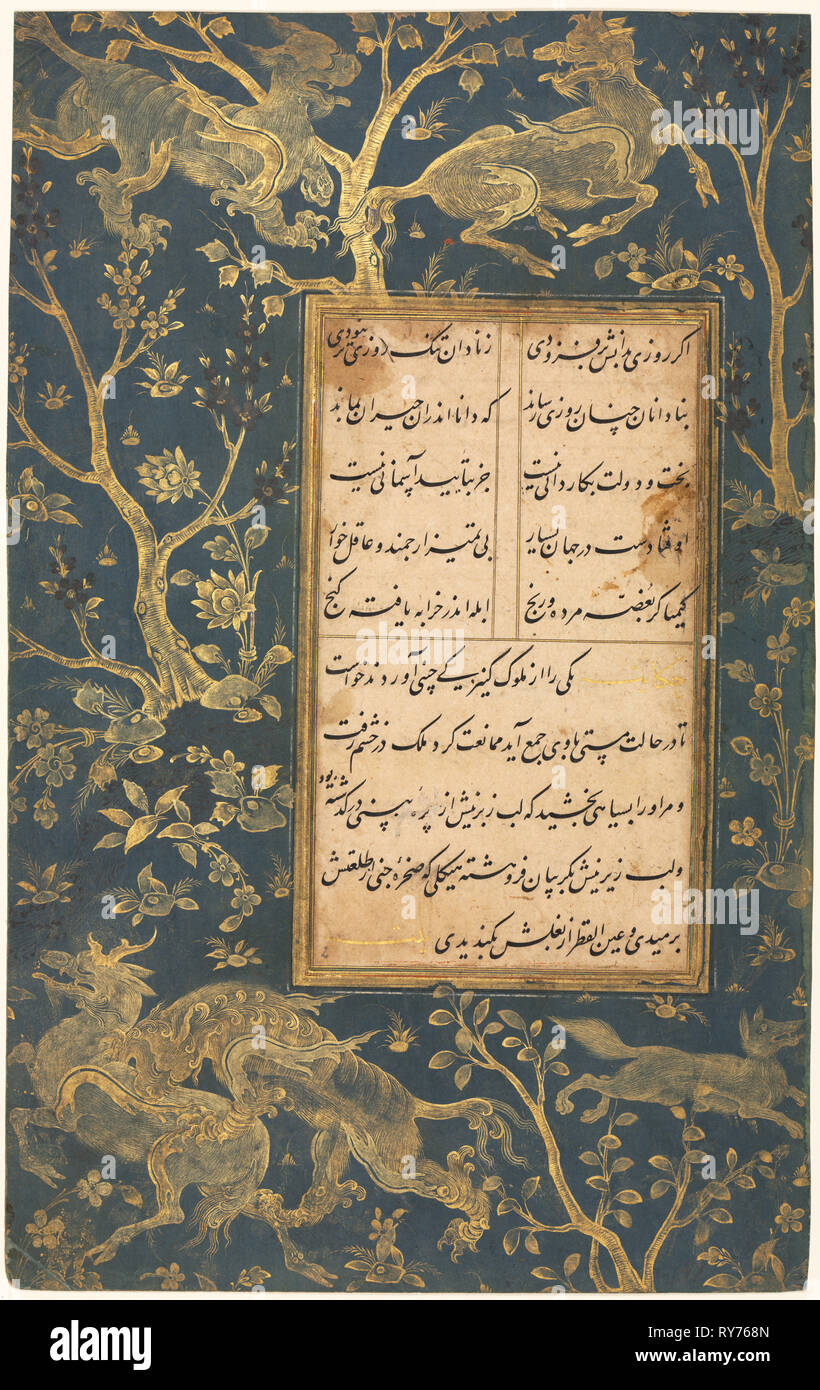 اگر روزی بدانش بر فزودی ز نادان تنک روزی تر نبودی
بنادانان چنان روزی رساند که دانا اندران حیران بماند
بخت و دولت بکاردانی نیست جز بتایید آسمانی نیست
اوفتادست در جهان بسیار بی تمیز ارجمند و عاقل خوار
کیمیاگر بغصه مرده و رنج ابله اندر خرابه یافته گنج
حکایت یکی را از ملوک کنیزکی چینی آوردند خواست
تا در حالت مستی با وی جمع آید ممانعت کرد ملک در خشم رفت
و مر او را بسیاهی بخشید که لب زبرینش از پره بینی در گذشته بود
و لب زیرینش بگریبان فرو هشته هیکلی که صخره جنی از طلعتش
برمیدی و عین القطر از بغلش بگندیدی
alamy
alamy
Image ID: RY768N
www.alamy.com